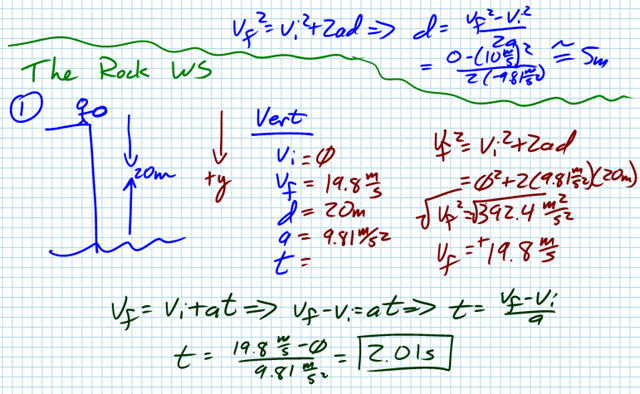 v_f² = v_i² + 2ad ⇒ d = (v_f² - v_i²)/2a
= (0 - (10 m/s)²)/(2(-9.81 m/s²)) ≅ 5m
The Rock WS
① 20m +y
Vert
v_i = ∅
v_f = 19.8 m/s
d = 20m
a = 9.81 m/s²
t =
v_f² = v_i² + 2ad
= ∅² + 2(9.81 m/s²)(20m)
√v_f² = √392.4 m²/s²
v_f = +19.8 m/s
v_f = v_i + at ⇒ v_f - v_i = at ⇒ t = (v_f - v_i)/a
t = (19.8 m/s - ∅)/(9.81 m/s²) = 2.01s